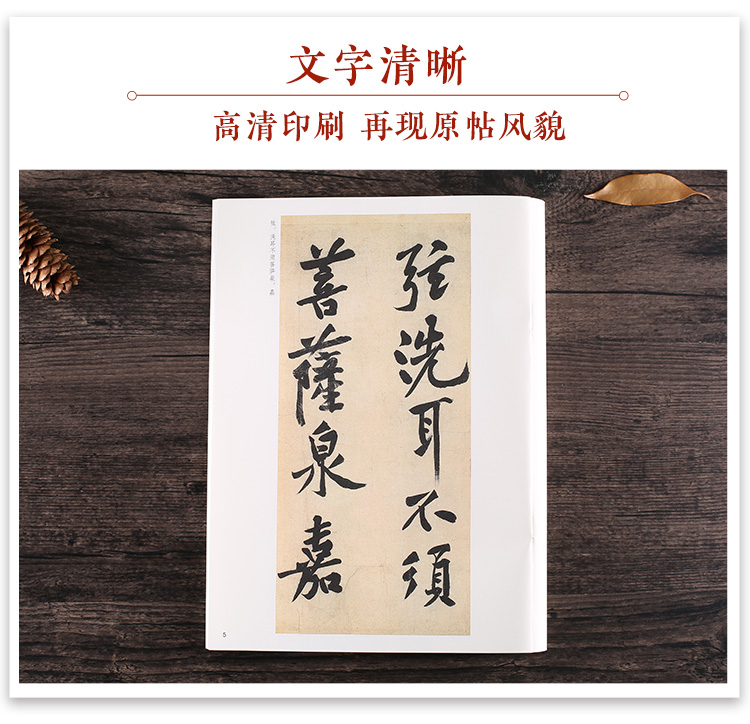 文字清晰
高清印刷 再现原帖风貌
弦。洗耳不须菩萨泉。嘉
弦洗耳不須
菩薩泉嘉
5